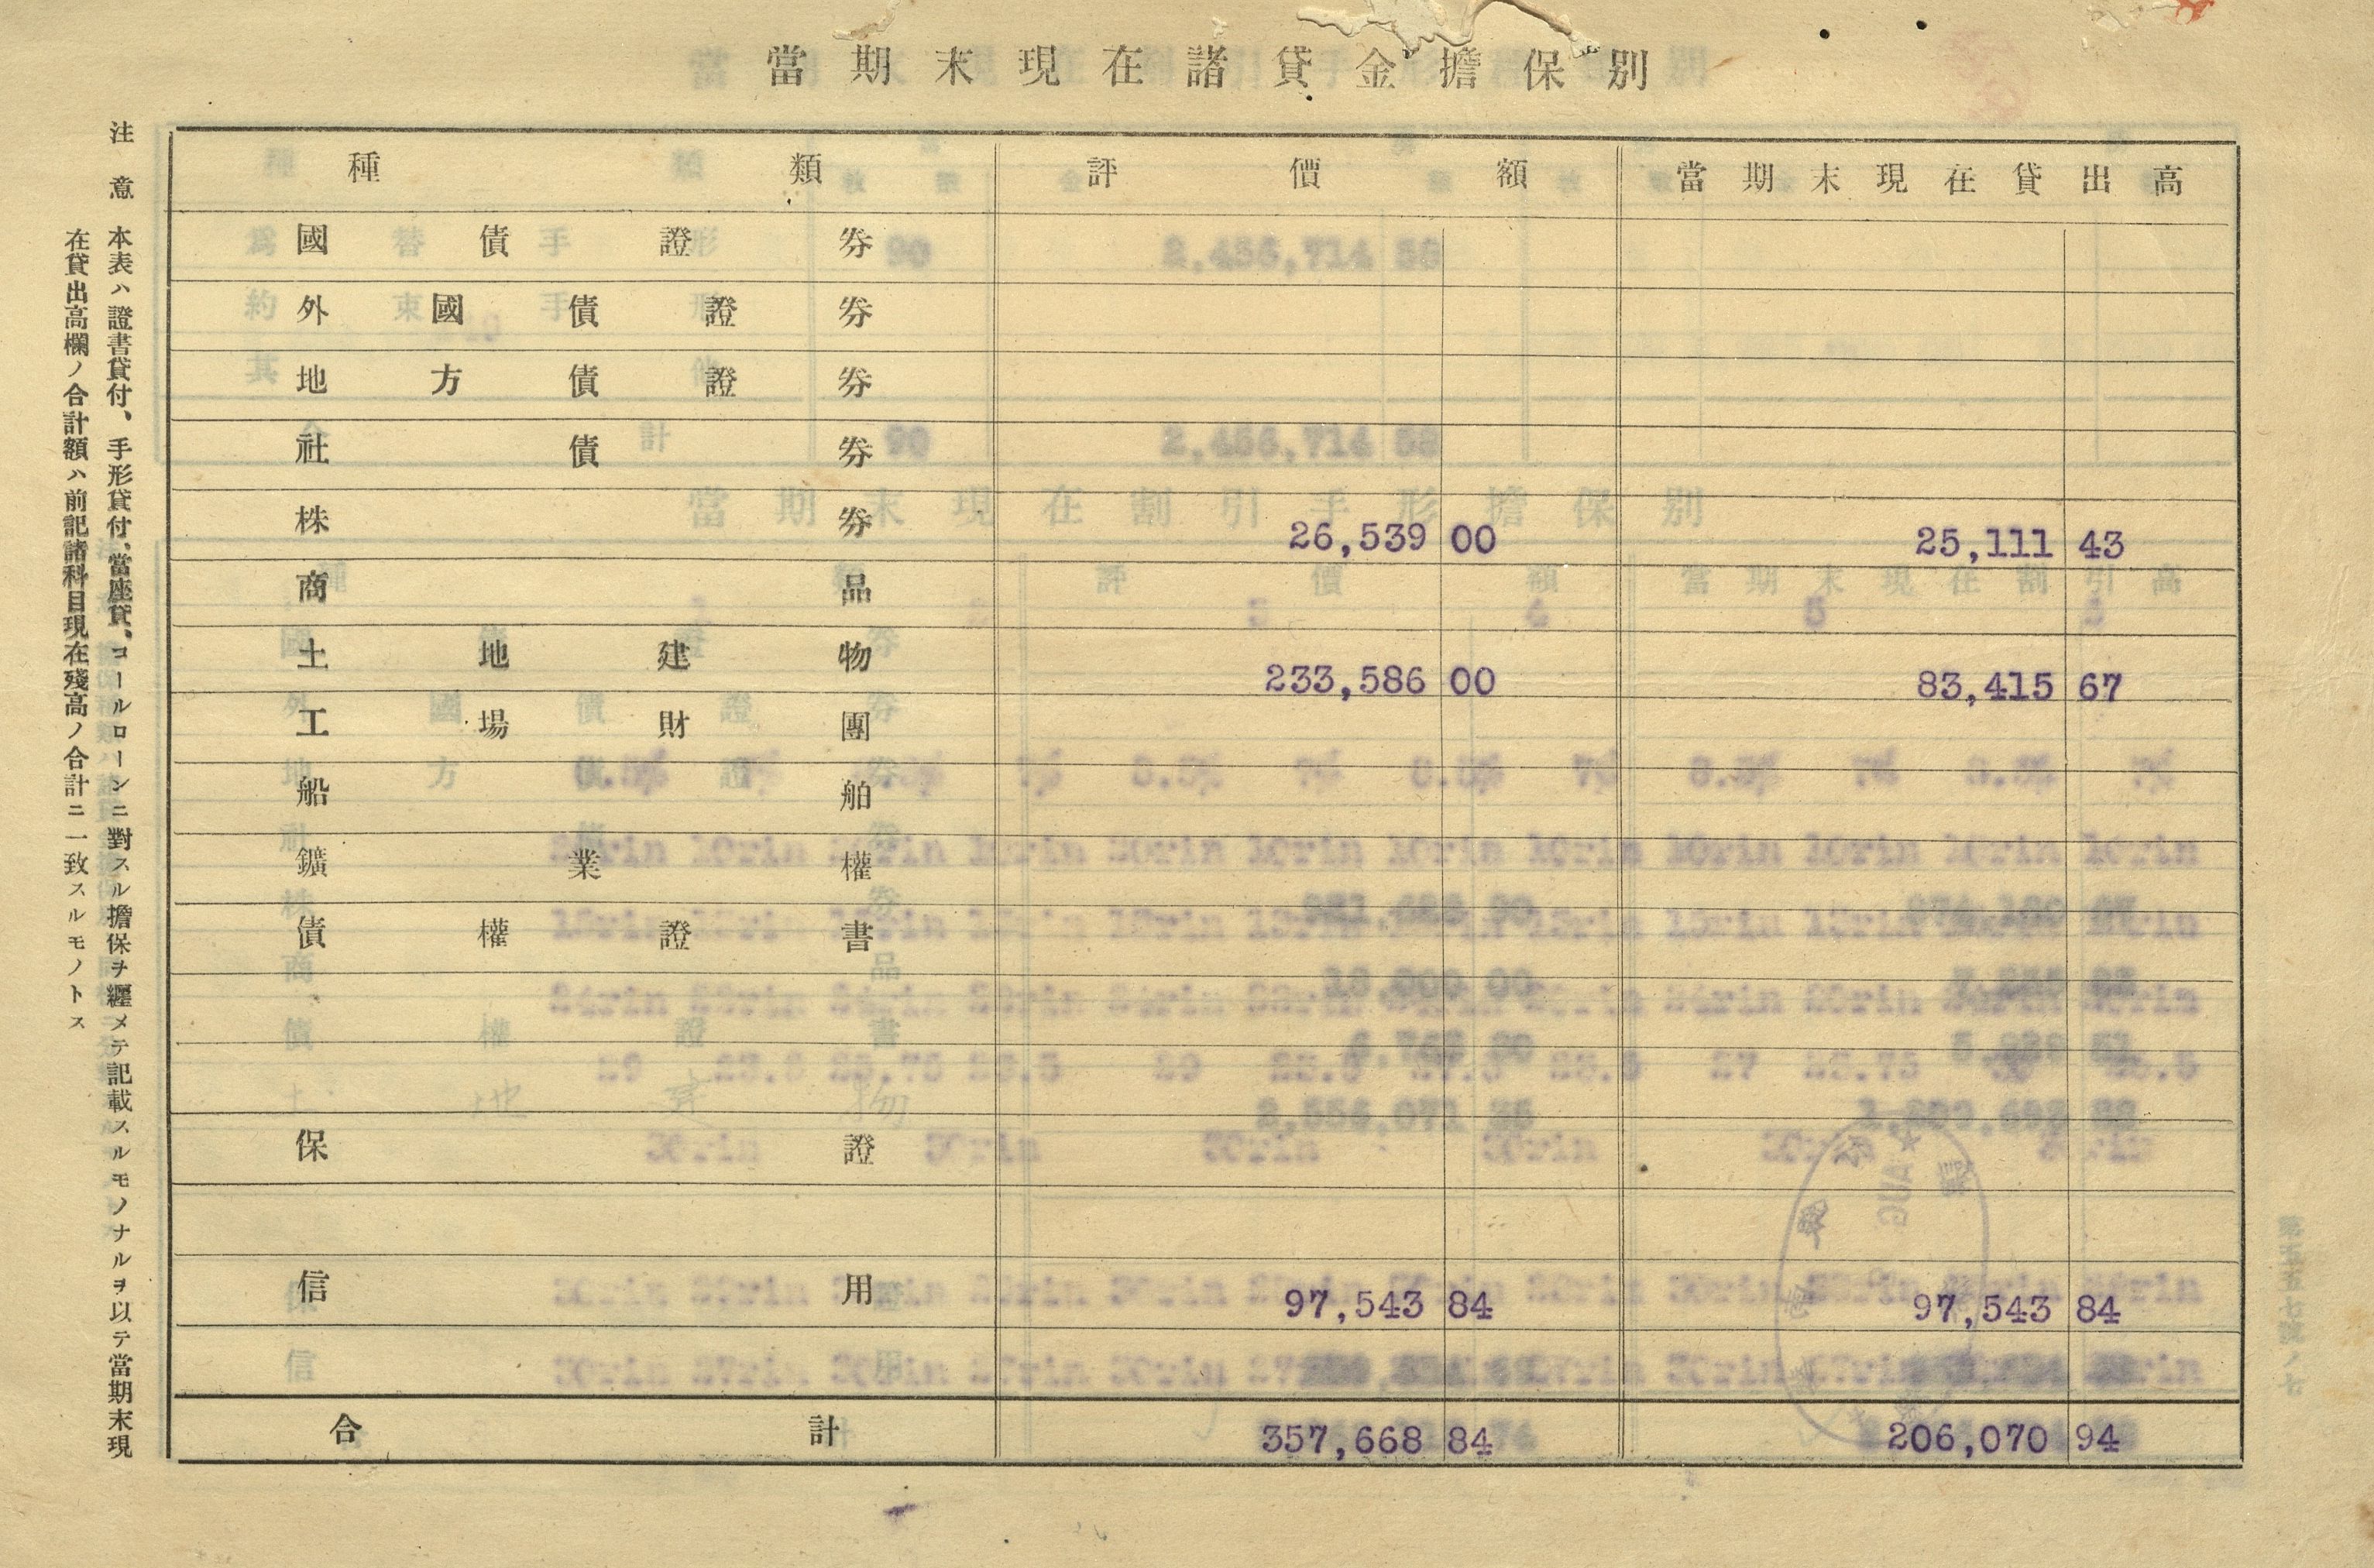 當期末現在諸貸金擔保別
種類 評價額 當期末現在貸出高
國債證券
外國債證券
地方債證券
社債券
株券 26,539 00 25,111 43
商品
土地建物 233,586 00 83,415 67
工場財團
船舶
鑛業權
債權證書
保證
信用 97,543 84 97,543 84
合計 357,668 84 206,070 94
注意 本表ハ證書貸付、手形貸付、當座貸、コールローンニ對スル擔保ヲ纒メテ記載スルモノナルヲ以テ當期末現
在貸出高欄ノ合計額ハ前記諸科目現在殘高ノ合計ニ一致スルモノトス